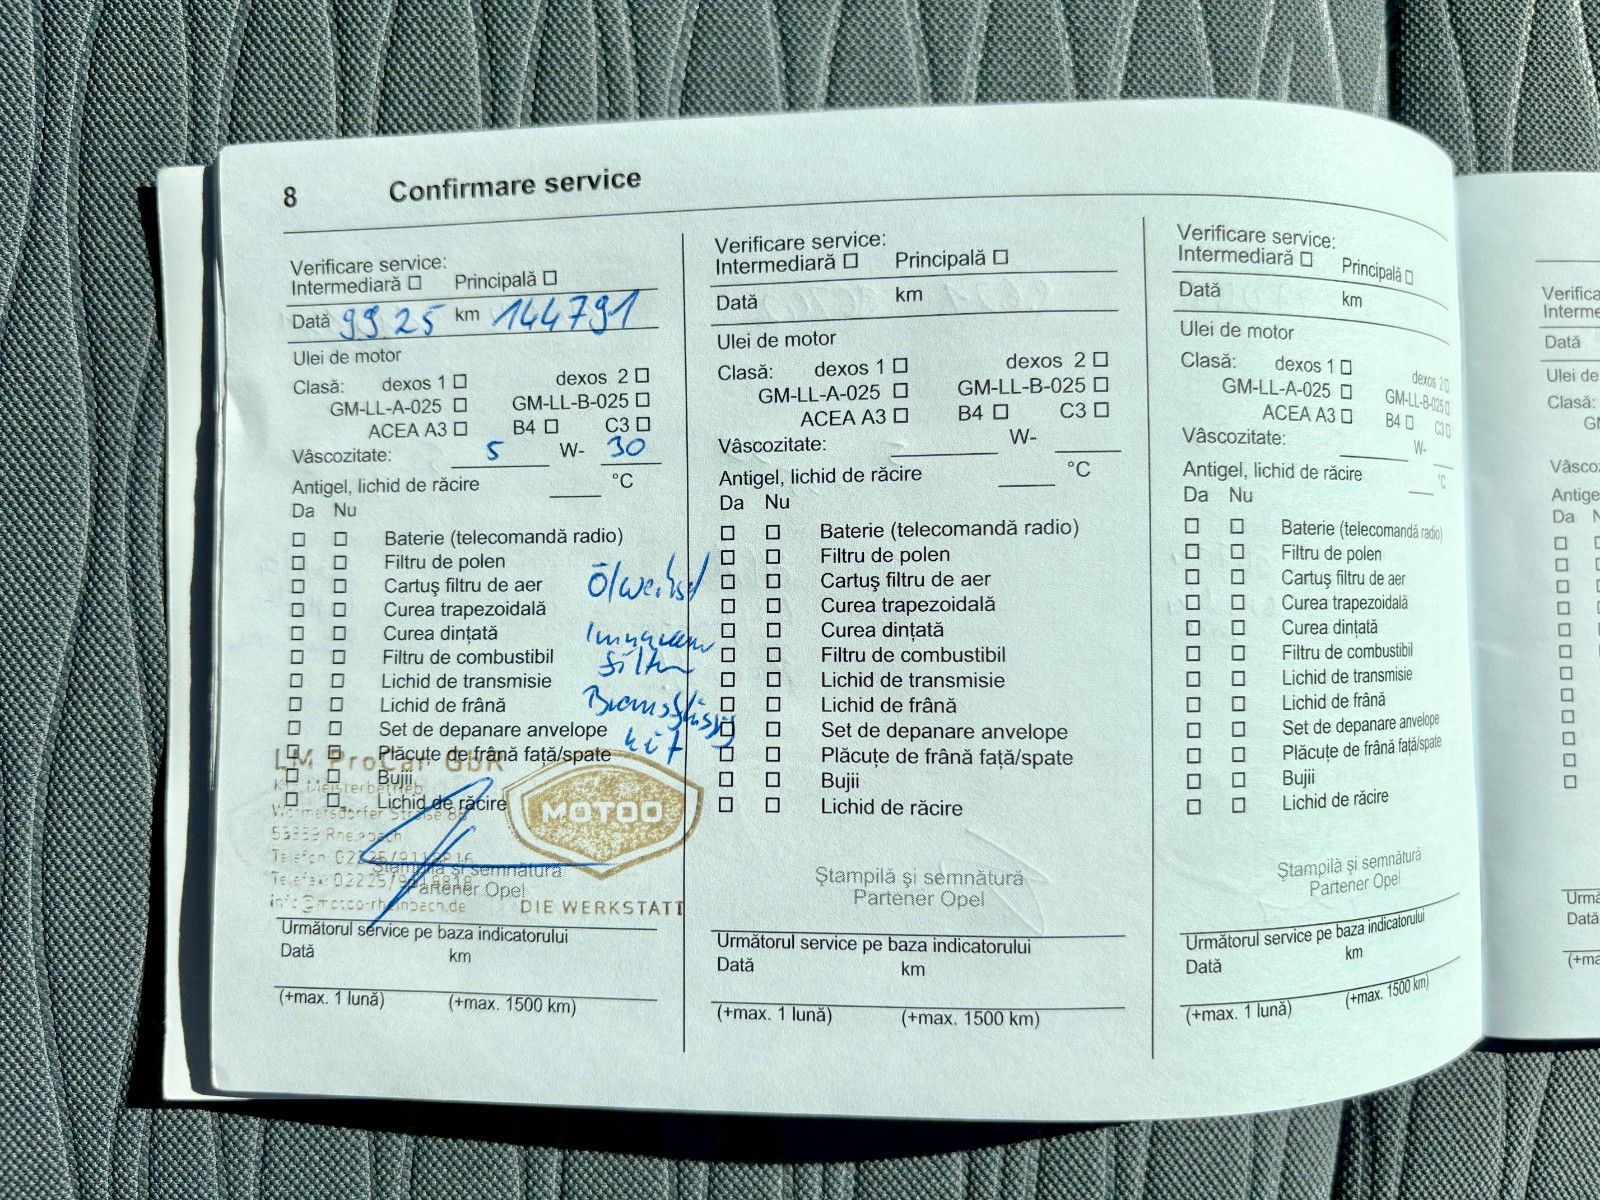 8 Confirmare service
Verificare service:
Intermediară □ Principală □
Dată 9 9 25 km 144791
Ulei de motor
Clasă: dexos 1 □ dexos 2 □
GM-LL-A-025 □ GM-LL-B-025 □
ACEA A3 □ B4 □ C3 □
Vâscozitate: 5 W- 30
Antigel, lichid de răcire ____ °C
Da Nu
□ □ Baterie (telecomandă radio)
□ □ Filtru de polen
□ □ Cartuş filtru de aer Ölwechsel
□ □ Curea trapezoidală
□ □ Curea dinţată Innenraum
□ □ Filtru de combustibil filter
□ □ Lichid de transmisie
□ □ Lichid de frână Bremsflüssig
□ □ Set de depanare anvelope keit
□ □ Plăcuţe de frână faţă/spate
□ □ Bujii
□ □ Lichid de răcire
LM ProCar GbR
Kfz Meisterbetrieb
Wormersdorfer Straße
53359 Rheinbach
Telefon: 02225/
Telefax: 02225/
info@motoo-rheinbach.de
MOTOO
DIE WERKSTATT
Ştampilă şi semnătură
Partener Opel
Următorul service pe baza indicatorului
Dată km
(+max. 1 lună) (+max. 1500 km)
Verificare service:
Intermediară □ Principală □
Dată km
Ulei de motor
Clasă: dexos 1 □ dexos 2 □
GM-LL-A-025 □ GM-LL-B-025 □
ACEA A3 □ B4 □ C3 □
Vâscozitate: ____ W- ____
Antigel, lichid de răcire ____ °C
Da Nu
□ □ Baterie (telecomandă radio)
□ □ Filtru de polen
□ □ Cartuş filtru de aer
□ □ Curea trapezoidală
□ □ Curea dinţată
□ □ Filtru de combustibil
□ □ Lichid de transmisie
□ □ Lichid de frână
□ □ Set de depanare anvelope
□ □ Plăcuţe de frână faţă/spate
□ □ Bujii
□ □ Lichid de răcire
Ştampilă şi semnătură
Partener Opel
Următorul service pe baza indicatorului
Dată km
(+max. 1 lună) (+max. 1500 km)
Verificare service:
Intermediară □ Principală □
Dată km
Ulei de motor
Clasă: dexos 1 □ dexos 2 □
GM-LL-A-025 □ GM-LL-B-025 □
ACEA A3 □ B4 □ C3 □
Vâscozitate: W-
Antigel, lichid de răcire ____ °C
Da Nu
□ □ Baterie (telecomandă radio)
□ □ Filtru de polen
□ □ Cartuş filtru de aer
□ □ Curea trapezoidală
□ □ Curea dinţată
□ □ Filtru de combustibil
□ □ Lichid de transmisie
□ □ Lichid de frână
□ □ Set de depanare anvelope
□ □ Plăcuţe de frână faţă/spate
□ □ Bujii
□ □ Lichid de răcire
Ştampilă şi semnătură
Partener Opel
Următorul service pe baza indicatorului
Dată km
(+max. 1 lună) (+max. 1500 km)
Verifica
Interme
Dată
Ulei de
Clasă:
Vâscoz
Antige
Da
Urmă
Dată
(+ma